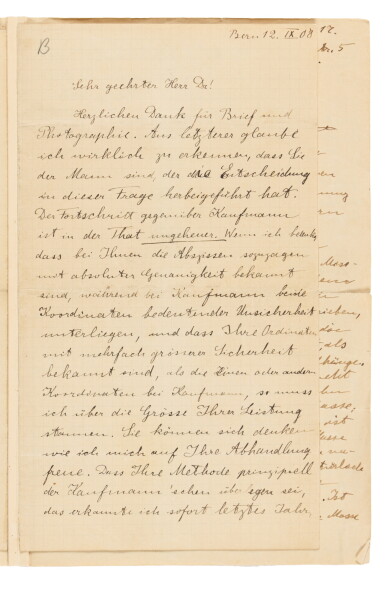 B
Bern 12. IX. 08
Sehr geehrter Herr Dr!
Herzlichen Dank für Brief und
Photographie. Aus letzterer glaube
ich wirklich zu erkennen, dass Sie
der Mann sind, der die Entscheidung
in dieser Frage herbeigeführt hat.
Der Fortschritt gegenüber Kaufmann
ist in der That ungeheuer. Wenn ich bedenke,
dass bei Ihnen die Abszissen sozusagen
mit absoluter Genauigkeit bekannt
sind, während bei Kaufmann beide
Koordinaten bedeutender Unsicherheit
unterliegen, und dass Ihre Ordinaten
mit mehrfach grösserer Sicherheit
bekannt sind, als die einen oder andern
Koordinaten bei Kaufmann, so muss
ich über die Grösse Ihrer Leistung
staunen. Sie können sich denken
wie ich mich auf Ihre Abhandlung
freue. Dass Ihre Methode prinzipiell
der Kaufmann'schen überlegen sei,
das erkannte ich sofort letztes Jahr,
12.
Nr. 5
Mass-
ieben,
die
als
asse,
ist
Ist
Masse